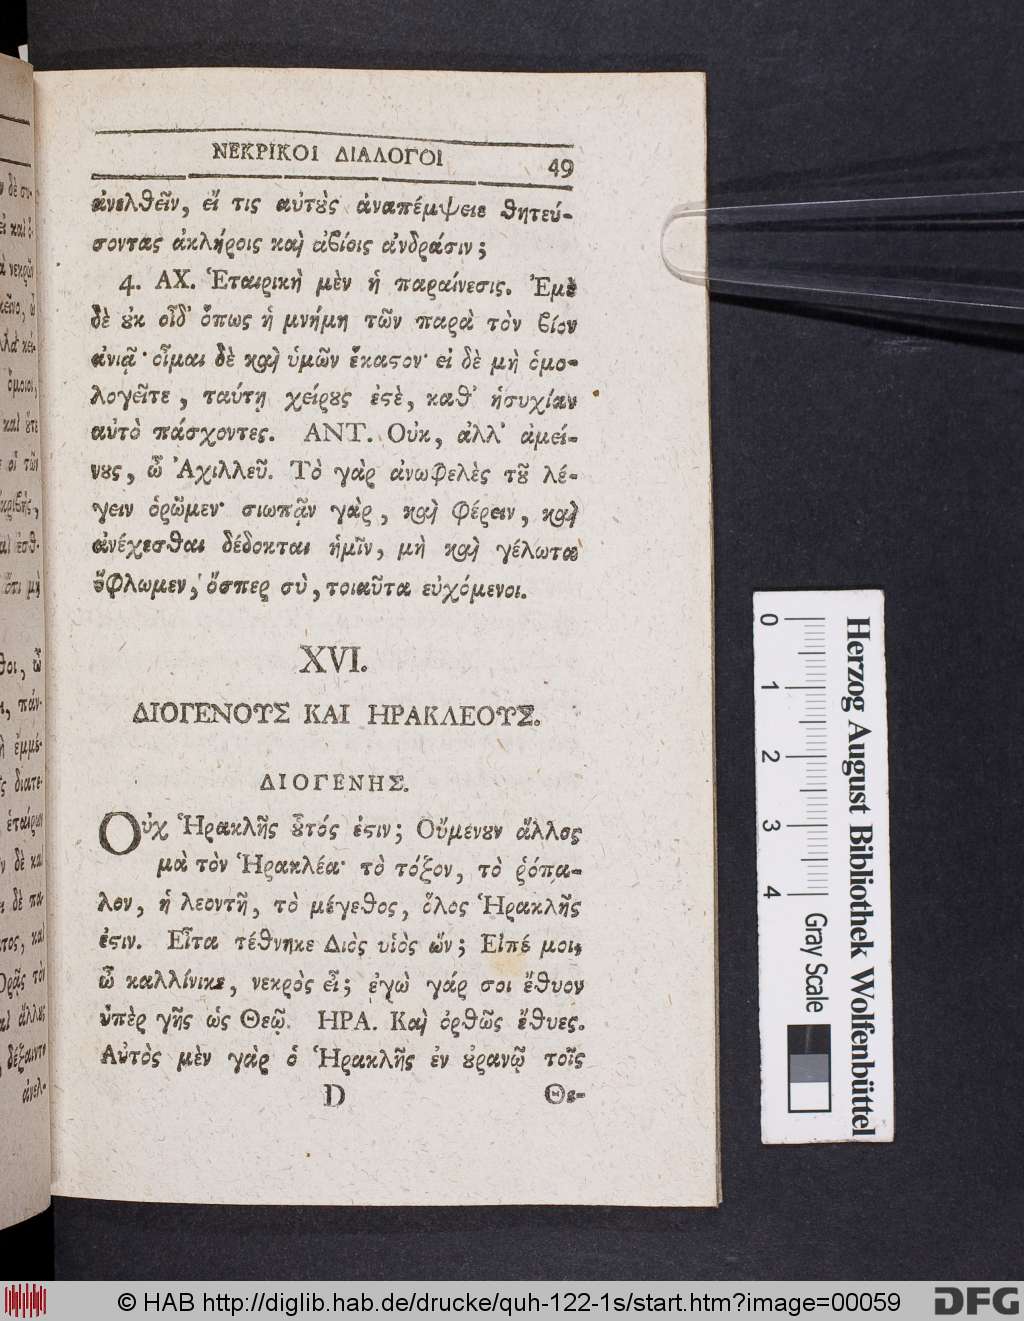 ΝΕΚΡΙΚΟΙ ΔΙΑΛΟΓΟΙ 49
ἀνελθεῖν, εἴ τις αὐτὸς ἀναπέμψειε θητεύ-
σοντας ἀκλήροις καὶ ἀβίοις ἀνδράσιν;
4. ΑΧ. Ἑταιρικὴ μὲν ἡ παραίνεσις. Ἐμὲ
δὲ ȣκ οἶδ᾽ ὅπως ἡ μνήμη τῶν παρὰ τὸν βίον
ἀνιᾷ· οἶμαι δὲ καὶ ὑμῶν ἕκαϛον· εἰ δὲ μὴ ὁμο-
λογεῖτε, ταύτῃ χείρȣς ἐϛὲ, καθ᾽ ἡσυχίαν
αὐτὸ πάσχοντες. ΑΝΤ. Οὐκ, ἀλλ᾽ ἀμεί-
νȣς, ὦ Ἀχιλλεῦ. Τὸ γὰρ ἀνωφελὲς τȣ͂ λέ-
γειν ὁρῶμεν· σιωπᾷν γὰρ, καὶ φέρειν, καὶ
ἀνέχεσθαι δέδοκται ἡμῖν, μὴ καὶ γέλωτα
ὄφλωμεν, ὅσπερ σὺ, τοιαῦτα εὐχόμενοι.
XVI.
ΔΙΟΓΕΝΟΥΣ ΚΑΙ ΗΡΑΚΛΕΟΥΣ.
ΔΙΟΓΕΝΗΣ.
Οὐχ Ἡρακλῆς ȣ̓τός ἐϛιν; Οὔμενȣν ἄλλος
μὰ τὸν Ἡρακλέα· τὸ τόξον, τὸ ῥόπα-
λον, ἡ λεοντῆ, τὸ μέγεθος, ὅλος Ἡρακλῆς
ἐϛιν. Εἶτα τέθνηκε Διὸς υἱὸς ὤν; Εἰπέ μοι,
ὦ καλλίνικε, νεκρὸς εἶ; ἐγὼ γάρ σοι ἔθυον
ὑπὲρ γῆς ὡς Θεῷ. ΗΡΑ. Καὶ ὀρθῶς ἔθυες.
Αὐτὸς μὲν γὰρ ὁ Ἡρακλῆς ἐν ȣ̓ρανῷ τοῖς
D Θε-
Herzog August Bibliothek Wolfenbüttel
0 1 2 3 4
Gray Scale
© HAB http://diglib.hab.de/drucke/quh-122-1s/start.htm?image=00059
DFG